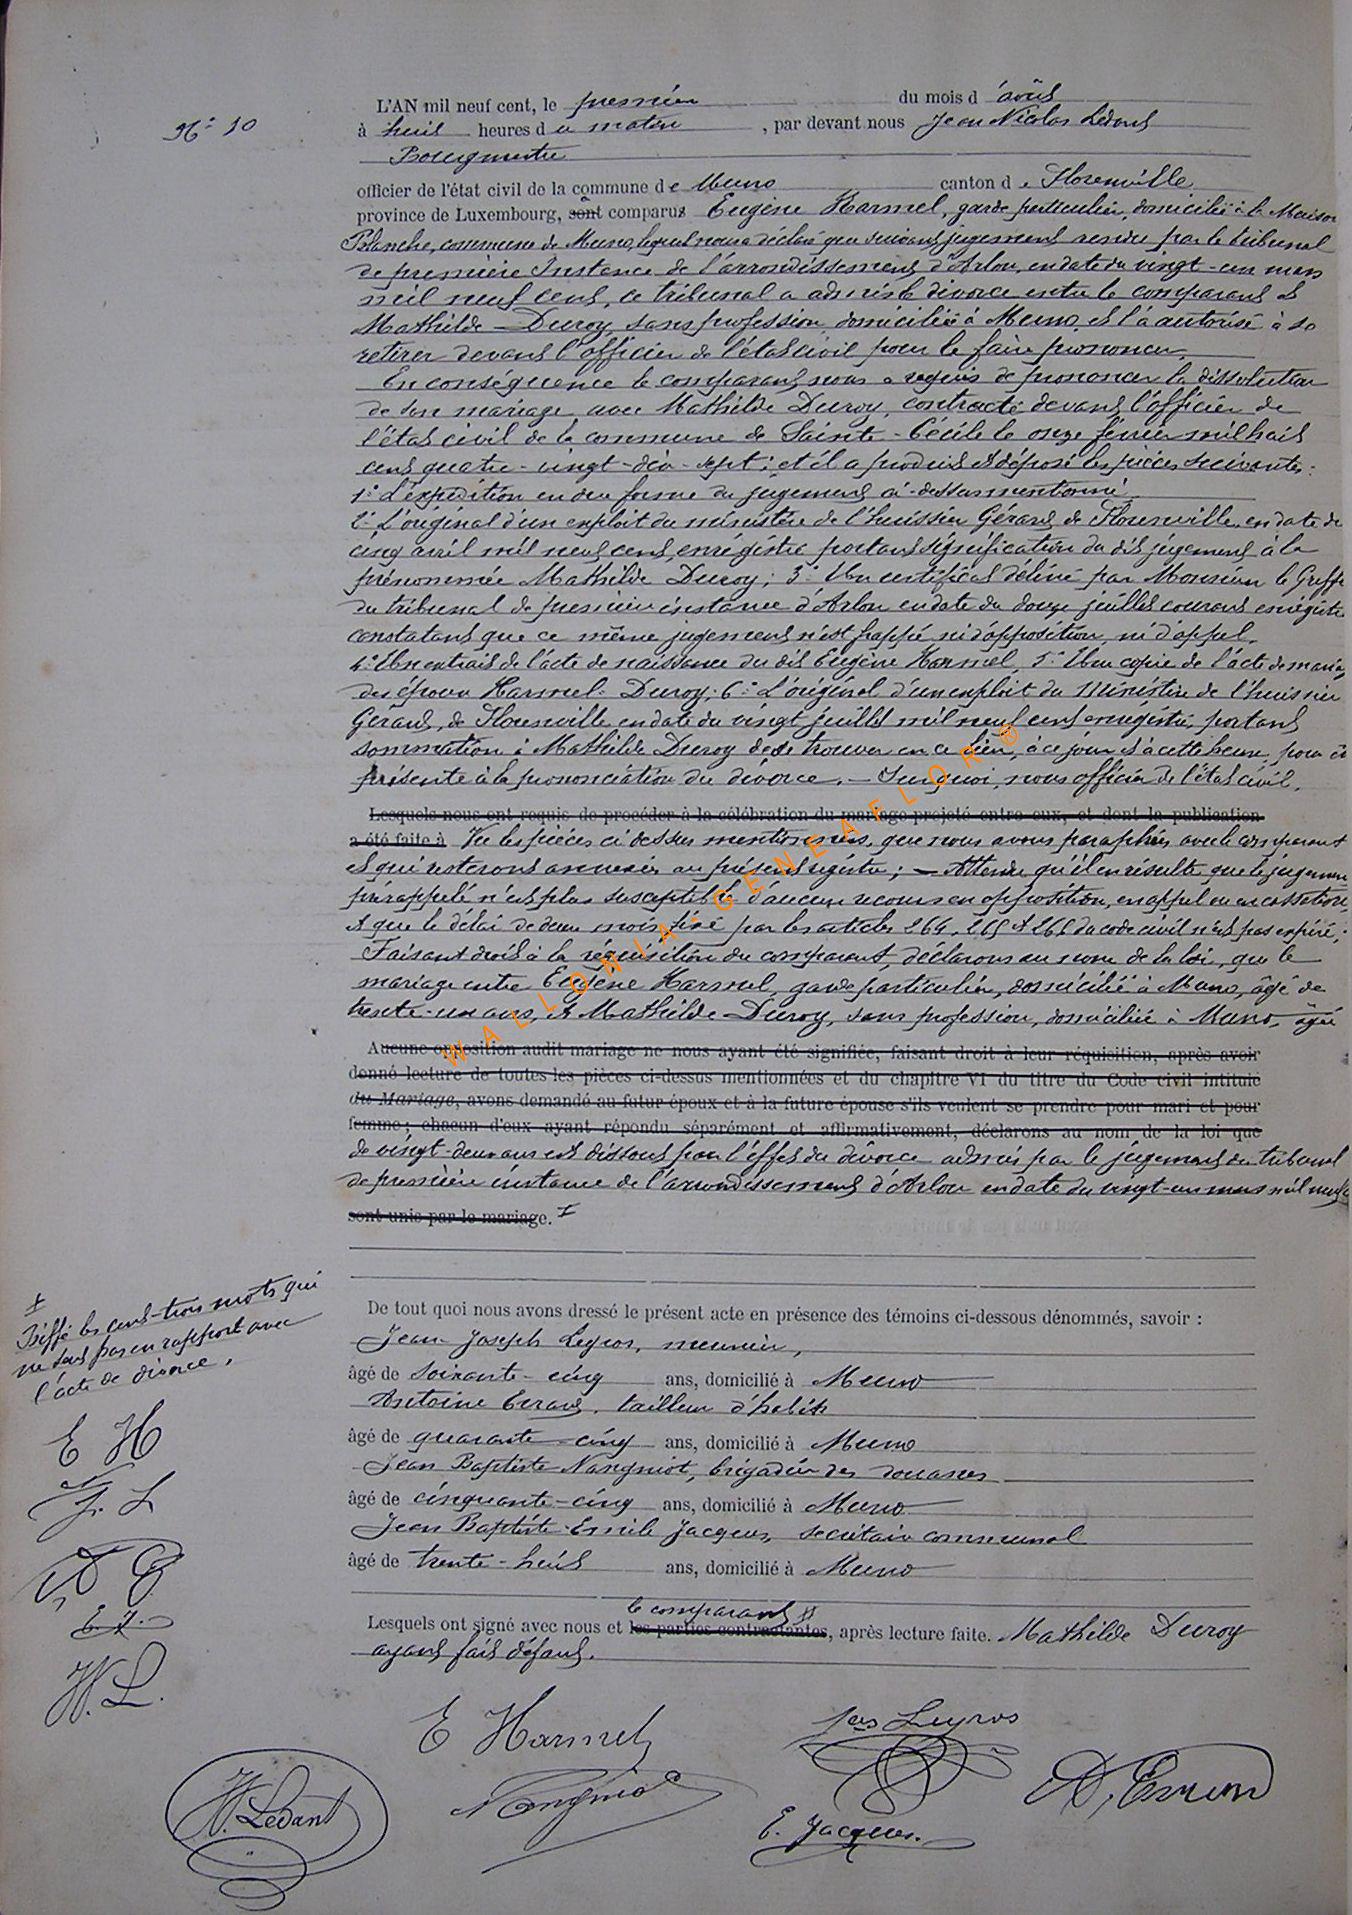 N° 10
L'AN mil neuf cent, le premier du mois d'août
à huit heures du matin, par devant nous Jean Nicolas Ledant
Bourgmestre
officier de l'état civil de la commune de Muno canton de Florenville
province de Luxembourg, sont comparus Eugène Harmel, garde particulier, domicilié à la Maison
Blanche, commune de Muno, lequel nous a déclaré que suivant jugement rendu par le tribunal
de première Instance de l'arrondissement d'Arlon, en date du vingt-un mars
mil neuf cent, ce tribunal a admis le divorce entre le comparant et
Mathilde Duroy, sans profession, domiciliée à Muno, et l'a autorisé à se
retirer devant l'officier de l'état civil pour le faire prononcer.
En conséquence le comparant, nous a requis de prononcer la dissolution
de son mariage avec Mathilde Duroy, contracté devant l'officier de
l'état civil de la commune de Sainte-Cécile le onze février mil huit
cent quatre-vingt-dix-sept; et il a produit et déposé les pièces suivantes:
1° L'expédition en due forme du jugement ci-dessus mentionné
2° L'original d'un exploit du ministère de l'huissier Gérard, de Florenville, en date du
cinq avril mil neuf cent, enrégistré portant signification du dit jugement à la
prénommée Mathilde Duroy; 3° Un certificat délivré par Monsieur le Greffi
du tribunal de première instance d'Arlon en date du douze juillet courant enrégistré
constatant que ce même jugement n'est frappé ni d'opposition, ni d'appel.
4° Un extrait de l'acte de naissance du dit Eugène Harmel, 5° Une copie de l'acte de maria
des époux Harmel-Duroy; 6° L'original d'un exploit du Ministère de l'huissier
Gérard, de Florenville, en date du vingt juillet mil neuf cent enrégistré, portant
sommation à Mathilde Duroy de se trouver en ce lieu, à ce jour et à cette heure, pour êt
présente à la prononciation du divorce. — Sur quoi, nous officier de l'état civil.
Lesquels nous ont requis de procéder à la célébration du mariage projeté entre eux, et dont la publication
a été faite à Vu les pièces ci dessus mentionnées, que nous avons paraphées avec le comparant
et qui resteront annexées au présent régistre; — Attendu qu'il en résulte que le jugement
prérappelé n'est plus susceptible d'aucun recours en opposition, en appel ou en cassation,
et que le délai de deux mois fixé par les articles 264, 265 et 266 du code civil n'est pas expiré;
Faisant droit à la réquisition du comparant, déclarons au nom de la loi, que le
mariage entre Eugène Harmel, garde particulier, domicilié à Muno, âgé de
trente-un ans, et Mathilde Duroy, sans profession, domiciliée à Muno, âgée
Aucune opposition audit mariage ne nous ayant été signifiée, faisant droit à leur réquisition, après avoir
donné lecture de toutes les pièces ci-dessus mentionnées et du chapitre VI du titre du Code civil intitulé
du Mariage, avons demandé au futur époux et à la future épouse s'ils veulent se prendre pour mari et pour
femme; chacun d'eux ayant répondu séparément et affirmativement, déclarons au nom de la loi que
de vingt-deux ans est dissous par l'effet du divorce admis par le jugement du tribunal
de première instance de l'arrondissement d'Arlon en date du vingt-un mars mil neuf
sont unis par le mariage.
Biffé les cent-trois mots qui
ne sont pas en rapport avec
l'acte de divorce.
E H
J. L
A E
E. J.
N. L.
De tout quoi nous avons dressé le présent acte en présence des témoins ci-dessous dénommés, savoir :
Jean Joseph Legros, meunier,
âgé de soixante-cinq ans, domicilié à Muno
Antoine Evrard, tailleur d'habits
âgé de quarante-cinq ans, domicilié à Muno
Jean Baptiste Nangniot, brigadier des douanes
âgé de cinquante-cinq ans, domicilié à Muno
Jean Baptiste Emile Jacques, secrétaire communal
âgé de trente-huit ans, domicilié à Muno
le comparant
Lesquels ont signé avec nous et les parties contractantes, après lecture faite. Mathilde Duroy
ayant fait défaut.
E Harmel
Jos Legros
N. Ledant
Nangniot
E. Jacques.
WALLONIA-GENEAFLOR ®